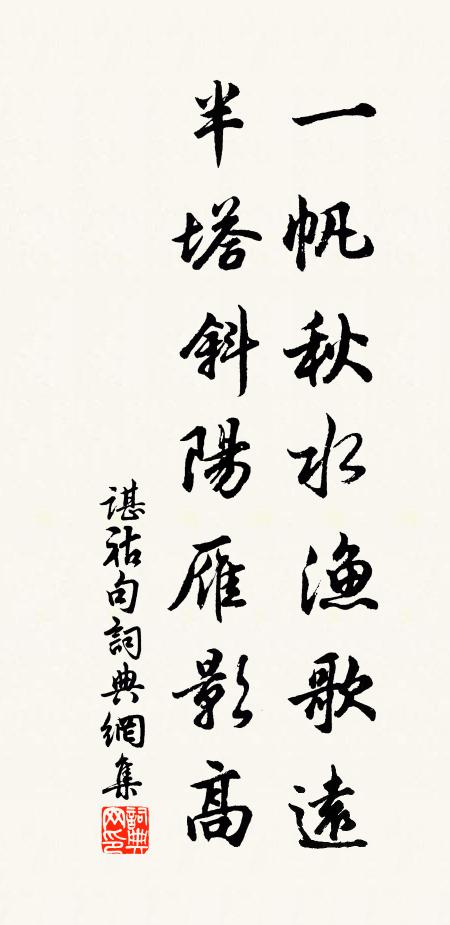 一帆秋水漁歌遠
半塔斜陽雁影高
諶祜句詞典網集
詞典
网印